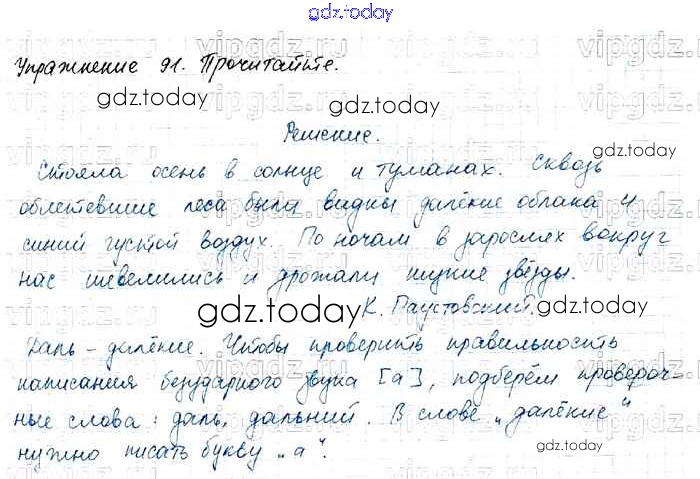 gdz.today
Упражнение 91. Прочитайте.
gdz.today
gdz.today
Решение.
gdz.today
Стояла осень в солнце и туманах. Сквозь
облетевшие леса были видны далёкие облака и
синий густой воздух. По ночам в зарослях вокруг
нас шевелились и дрожали низкие звёзды.
К. Паустовский.
gdz.today
gdz.today
Даль – далёкие. Чтобы проверить правильность
написания безударного звука [а], подберём провероч-
ные слова: даль, дальний. В слове „далёкие“
нужно писать букву „а“.
gdz.today
gdz.today